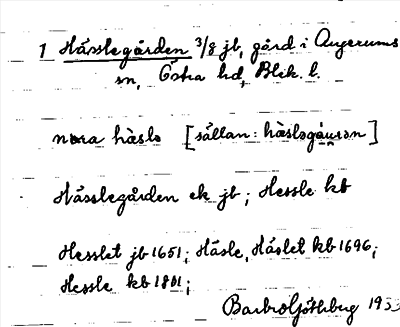 1 Hässlegården 3/8 jb, gård i Augerums
sn, Östra hd, Blek. l.
nora hàslə [sällan: hàsləgåu̯rən]
Hässlegården ek jb; Hessle kb
Hesslet jb 1651; Häsle, Häslet kb 1696;
Hessle kb 1801;
Barbro Göthberg 1933